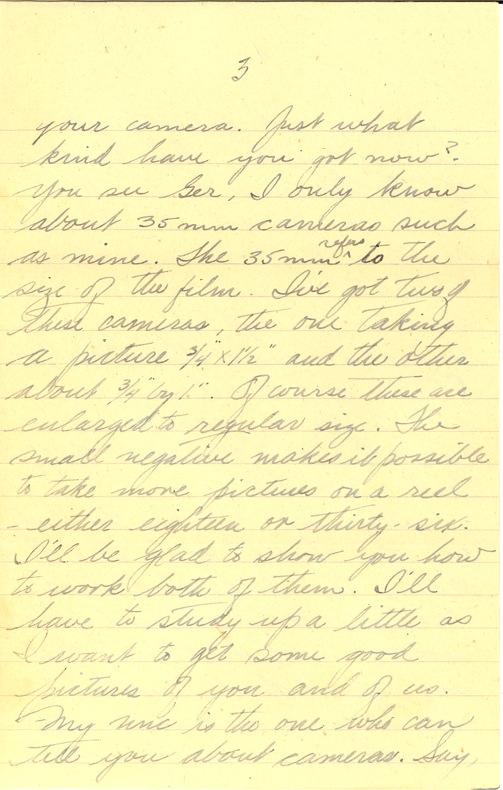 3
your camera. Just what
kind have you got now?
You see Ger, I only know
about 35 mm cameras such
as mine. The 35 mm refers to the
size of the film. I've got two of
these cameras, the one taking
a picture 3/4" x 1 1/2" and the other
about 3/4" by 1". Of course these are
enlarged to regular size. The
small negative makes it possible
to take more pictures on a reel
- either eighteen or thirty-six.
I'll be glad to show you how
to work both of them. I'll
have to study up a little as
I want to get some good
pictures of you and of us.
- My unc is the one who can
tell you about cameras. Say,